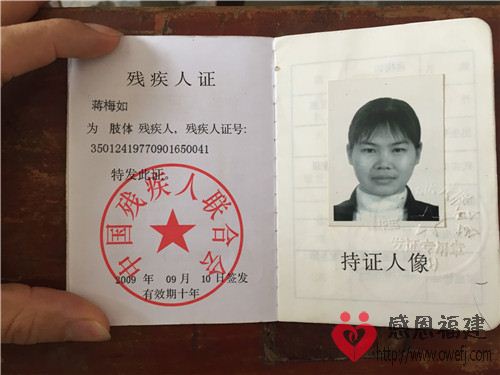 残疾人证
蒋梅如
为 肢体 残疾人，残疾人证号:
35012419770901650041
特发此证。
中国残疾人联合会
2009 年 09 月 10 日签发
有效期十年
发证专用章
持证人像
感恩福建
http://www.owefj.com